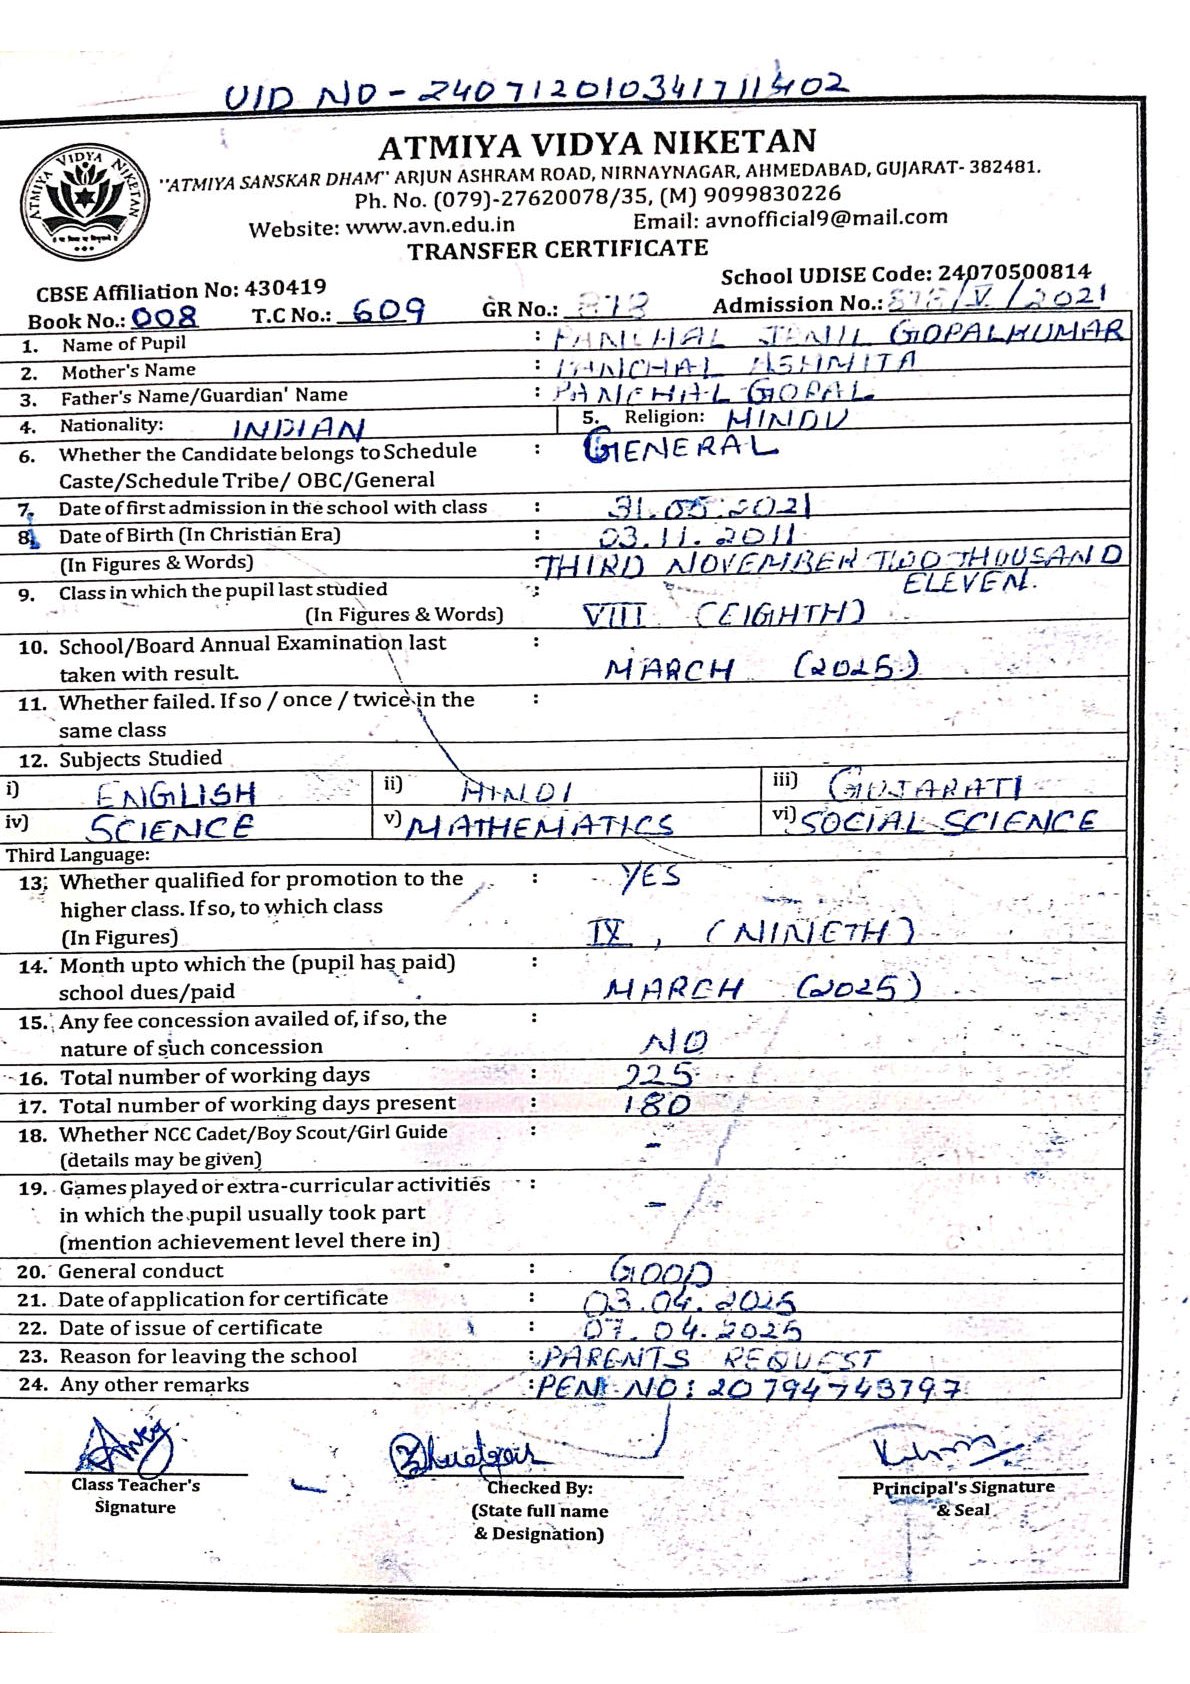 UID NO - 240712010341711402
ATMIYA VIDYA NIKETAN
"ATMIYA SANSKAR DHAM" ARJUN ASHRAM ROAD, NIRNAYNAGAR, AHMEDABAD, GUJARAT- 382481.
Ph. No. (079)-27620078/35, (M) 9099830226
Website: www.avn.edu.in Email: avnofficial9@mail.com
TRANSFER CERTIFICATE
ATMIYA VIDYA NIKETAN
CBSE Affiliation No: 430419 School UDISE Code: 24070500814
Book No.: 008 T.C No.: 609 GR No.: 878 Admission No.: 878/V/2021
1. Name of Pupil : PANCHAL JENIL GOPALKUMAR
2. Mother's Name : PANCHAL ASHMITA
3. Father's Name/Guardian' Name : PANCHAL GOPAL
4. Nationality: INDIAN 5. Religion: HINDU
6. Whether the Candidate belongs to Schedule : GENERAL
Caste/Schedule Tribe/ OBC/General
7. Date of first admission in the school with class : 31.05.2021
8. Date of Birth (In Christian Era) : 03.11.2011
(In Figures & Words) : THIRD NOVEMBER TWO THOUSAND
ELEVEN.
9. Class in which the pupil last studied :
(In Figures & Words) VIII (EIGHTH)
10. School/Board Annual Examination last :
taken with result. MARCH (2025)
11. Whether failed. If so / once / twice in the :
same class
12. Subjects Studied
i) ENGLISH ii) HINDI iii) GUJARATI
iv) SCIENCE v) MATHEMATICS vi) SOCIAL SCIENCE
Third Language:
13. Whether qualified for promotion to the : YES
higher class. If so, to which class
(In Figures) IX, (NINETH)
14. Month upto which the (pupil has paid) :
school dues/paid MARCH (2025)
15. Any fee concession availed of, if so, the :
nature of such concession NO
16. Total number of working days : 225
17. Total number of working days present : 180
18. Whether NCC Cadet/Boy Scout/Girl Guide : -
(details may be given)
19. Games played or extra-curricular activities :
in which the pupil usually took part -
(mention achievement level there in)
20. General conduct : GOOD
21. Date of application for certificate : 03.04.2025
22. Date of issue of certificate : 07.04.2025
23. Reason for leaving the school : PARENTS REQUEST
24. Any other remarks : PEN NO: 20794743797
Class Teacher's Checked By: Principal's Signature
Signature (State full name & Seal
& Designation)